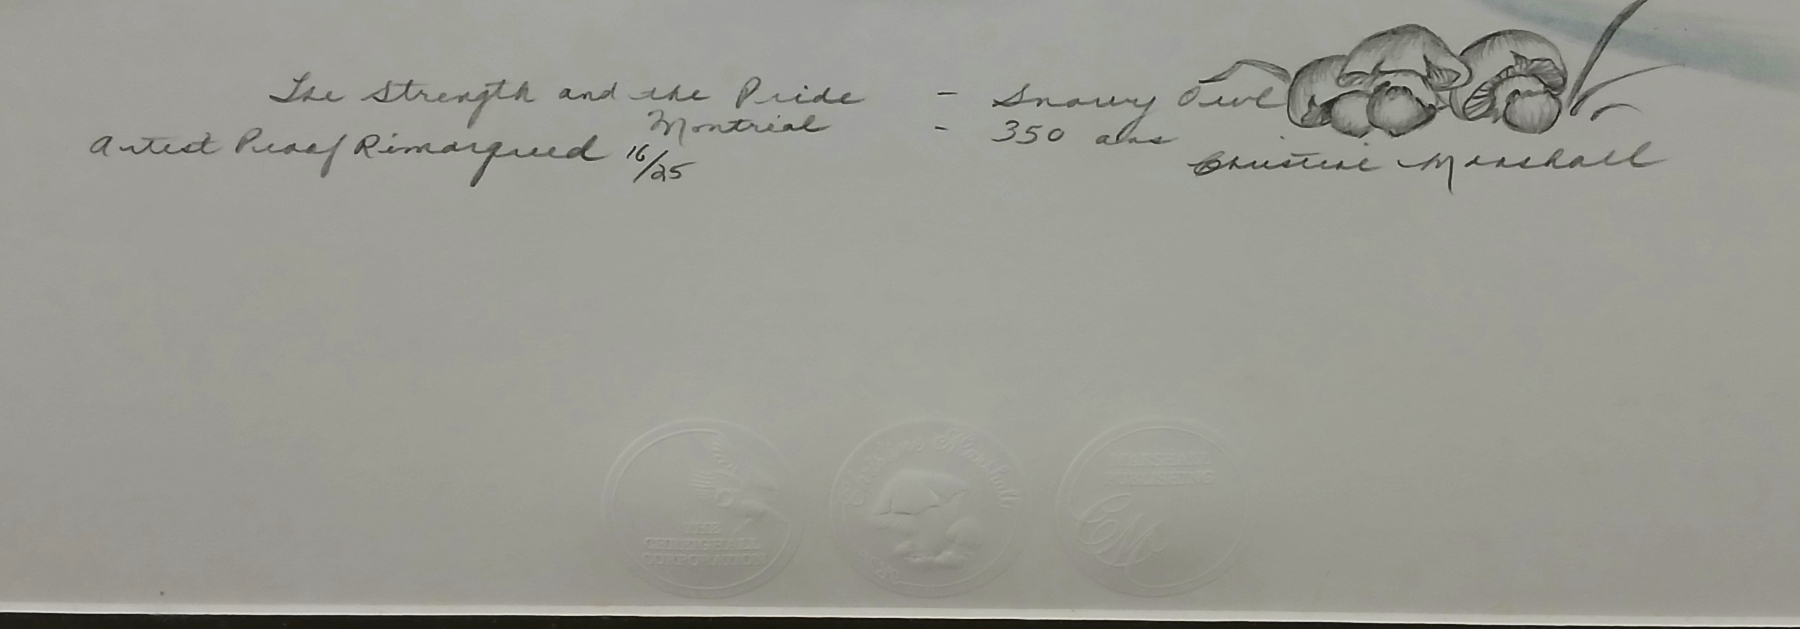 The Strength and the Pride - Snowy Owl
Montrial - 350 ans
Artist Proof Rimarqued 16/25
Christine Marshall
THE
CORPORATION
Christine Marshall
MARSHALL
PUBLISHING
CM